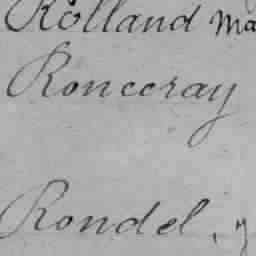 Rolland Ma
Ronceray
Rondel,